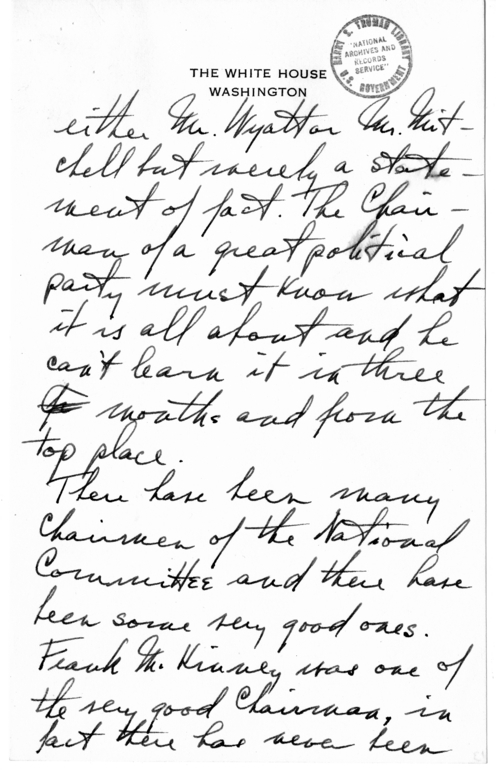 HARRY S. TRUMAN LIBRARY
"NATIONAL
ARCHIVES AND
RECORDS
SERVICE"
U.S. GOVERNMENT
THE WHITE HOUSE
WASHINGTON
either Mr. Wyatt or Mr. Mit-
chell but merely a state-
ment of fact. The Chair-
man of a great political
party must know what
it is all about and he
can't learn it in three
months and from the
top place.
There have been many
Chairmen of the National
Committee and there have
been some very good ones.
Frank McKinney was one of
the very good Chairman, in
fact there has never been